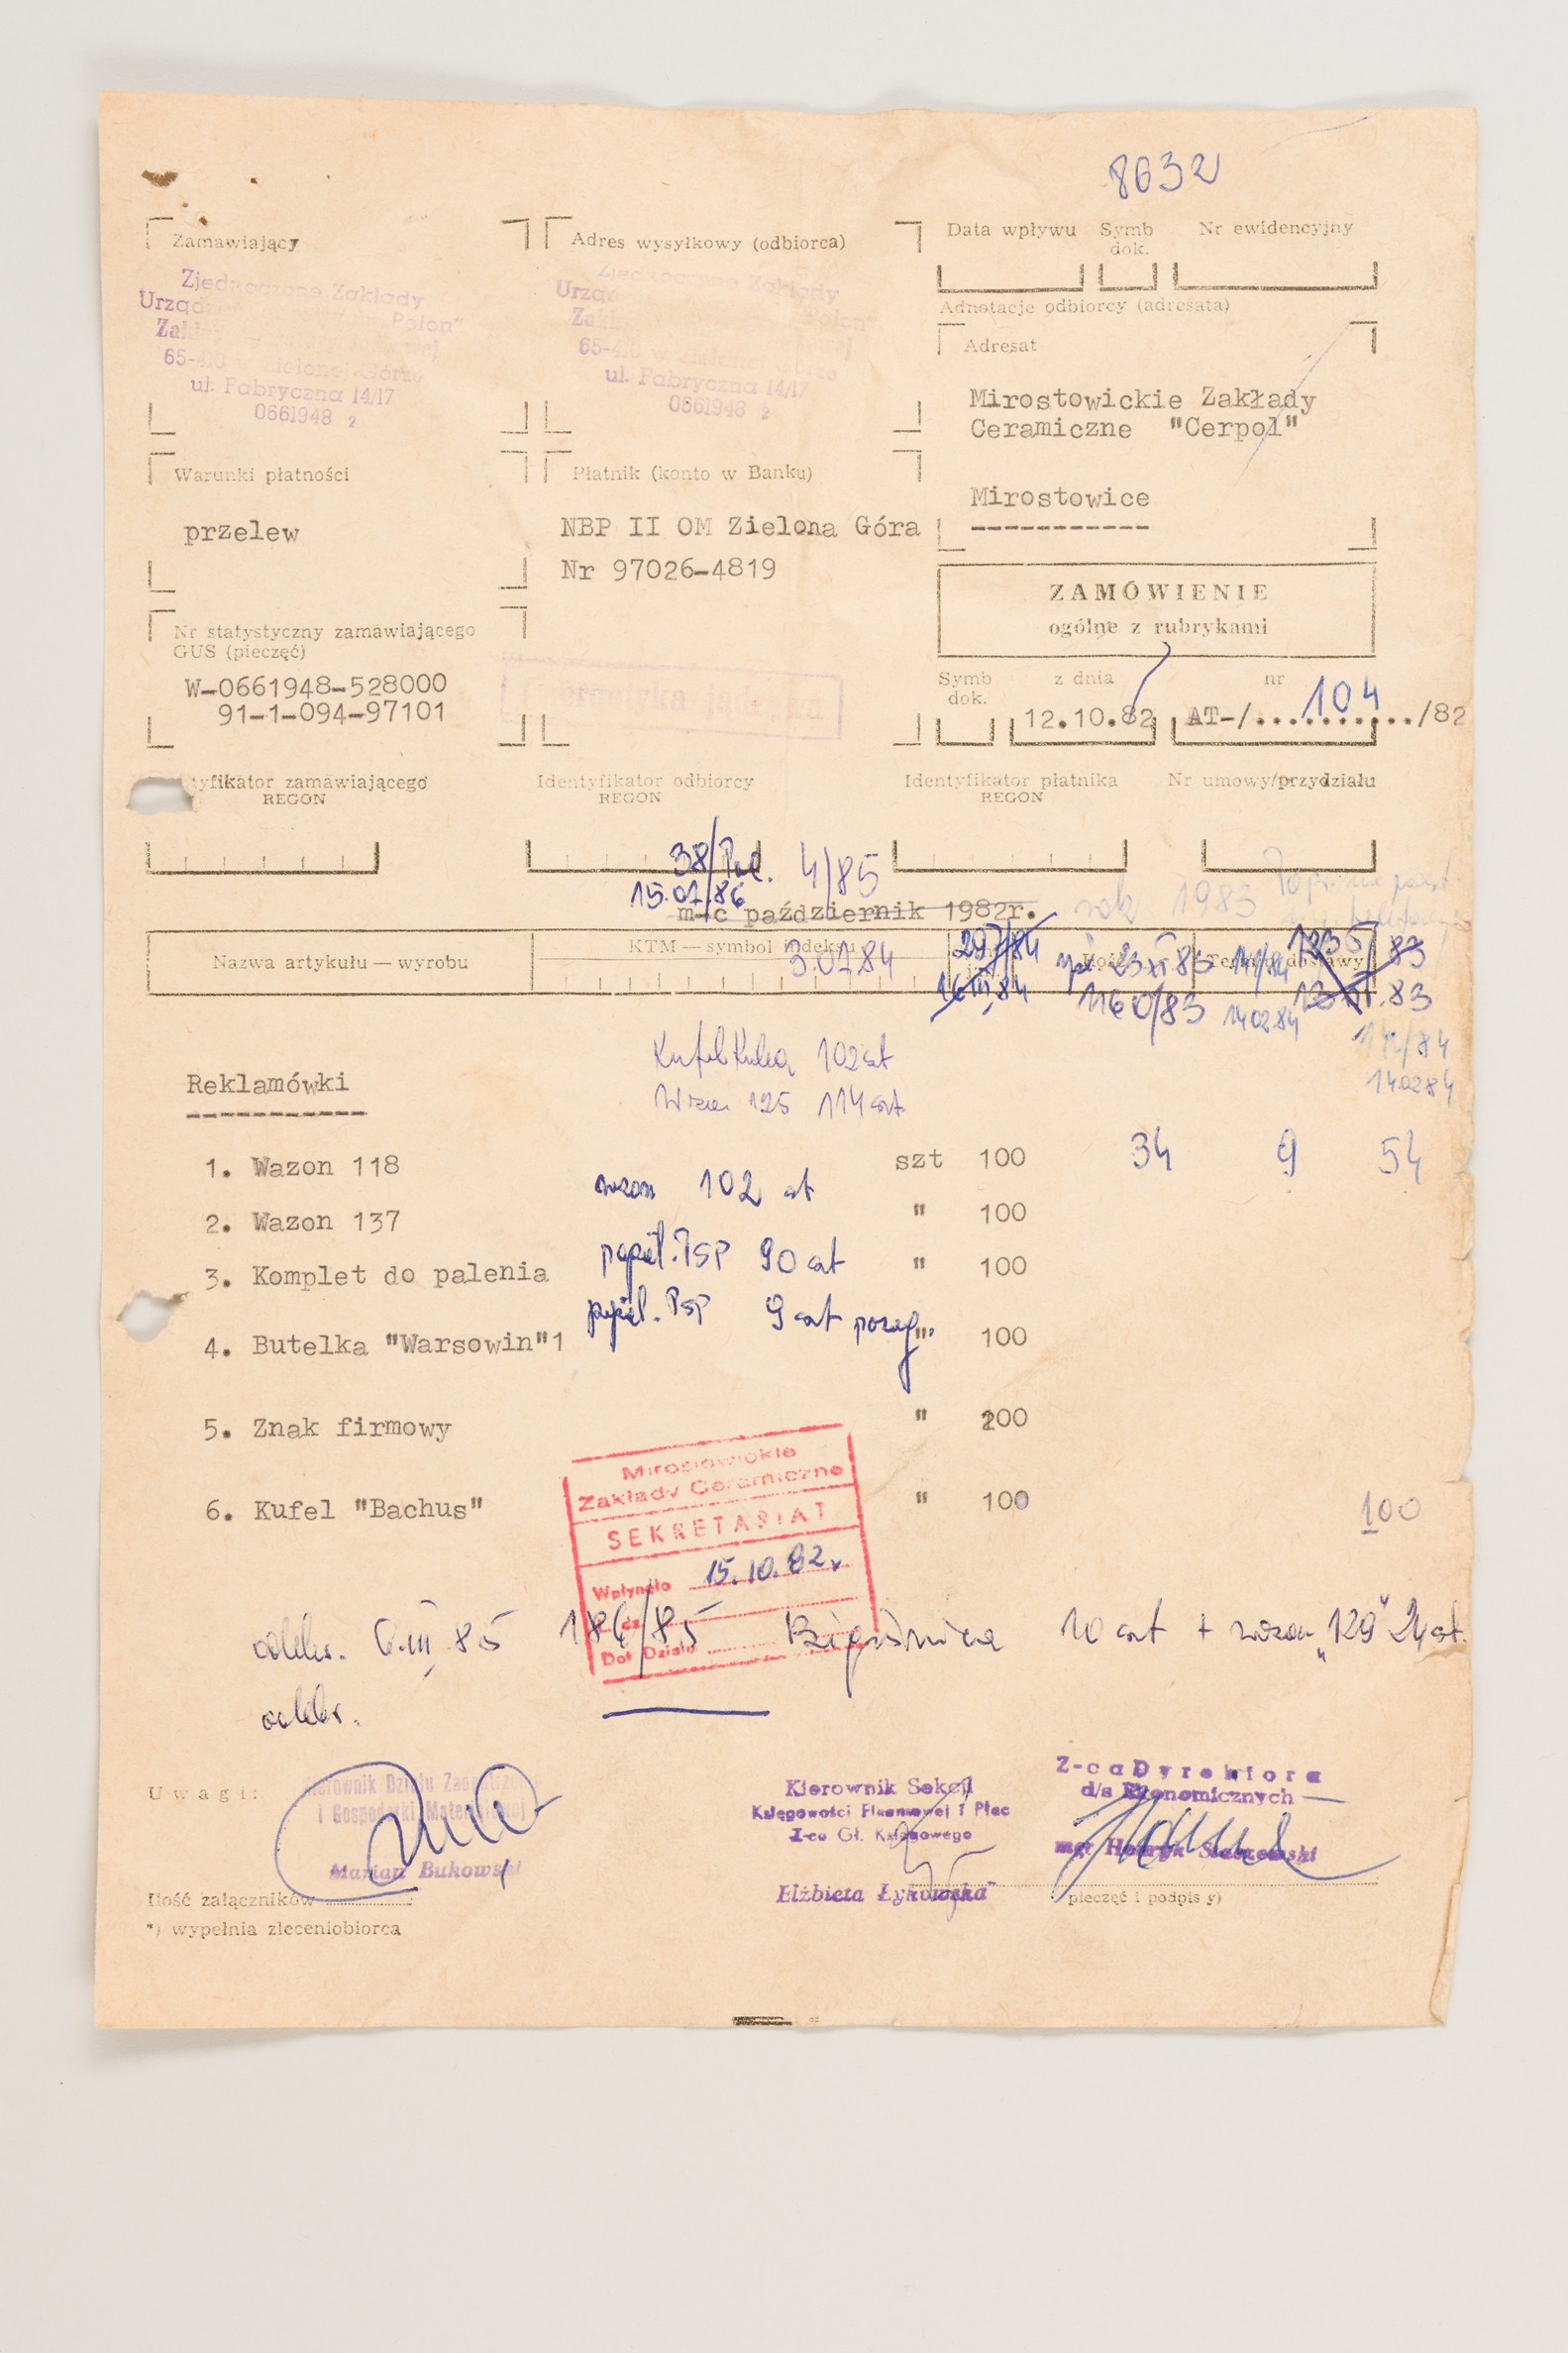 8632
Zamawiający
Zjednoczone Zakłady
Urządz "Polon"
Zakł
65-410 w Zielonej Górze
ul. Fabryczna 14/17
0661948 2
Adres wysyłkowy (odbiorca)
Zjednoczone Zakłady
Urządz "Polon"
Zakł
65-410 w Zielonej Górze
ul. Fabryczna 14/17
0661948 2
Data wpływu Symb dok. Nr ewidencyjny
Adnotacje odbiorcy (adresata)
Adresat
Mirostowickie Zakłady
Ceramiczne "Cerpol"
Mirostowice
Warunki płatności
przelew
Płatnik (konto w Banku)
NBP II OM Zielona Góra
Nr 97026-4819
ZAMÓWIENIE
ogólne z rubrykami
Nr statystyczny zamawiającego
GUS (pieczęć)
W-0661948-528000
91-1-094-97101
Symb dok. z dnia nr
12.10.82 AT-/..104../82
tyfikator zamawiającego
REGON
Identyfikator odbiorcy
REGON
Identyfikator płatnika
REGON
Nr umowy/przydziału
38/ 4/85
15.07.86
m-c październik 1982r. rok 1983
Nazwa artykułu — wyrobu
KTM — symbol indeksu
3.07.84
297/84
16 III 84
23 XI 83
1160/83
141/84
14.02.84
Termin dostawy
1235/83
.83
14.02.84
Kufel Kulka 102 szt
Wazon 125 114 szt
Reklamówki
1. Wazon 118 szt 100 34 9 54
wazon 102 szt
2. Wazon 137 " 100
popiel. PSP 90 szt
3. Komplet do palenia " 100
popiel. PSP 9 szt
4. Butelka "Warsowin"1 " 100
5. Znak firmowy " 200
6. Kufel "Bachus" " 100 100
Mirostowickie
Zakłady Ceramiczne
SEKRETARIAT
Wpłynęło 15.10.82
L. dz.
Do Działu
odebr. 6.III.85 184/85 10 szt + wazon "129" 24 szt.
odebr.
Uwagi:
Kierownik Działu Zaopatrzenia
i Gospodarki Materiałowej
Marian Bukowski
Kierownik Sekcji
Księgowości Finansowej i Płac
Z-ca Gł. Księgowego
Elżbieta Łykowska
Z-ca Dyrektora
d/s Ekonomicznych
mgr Henryk
Ilość załączników
*) wypełnia zleceniobiorca
pieczęć i podpis y)